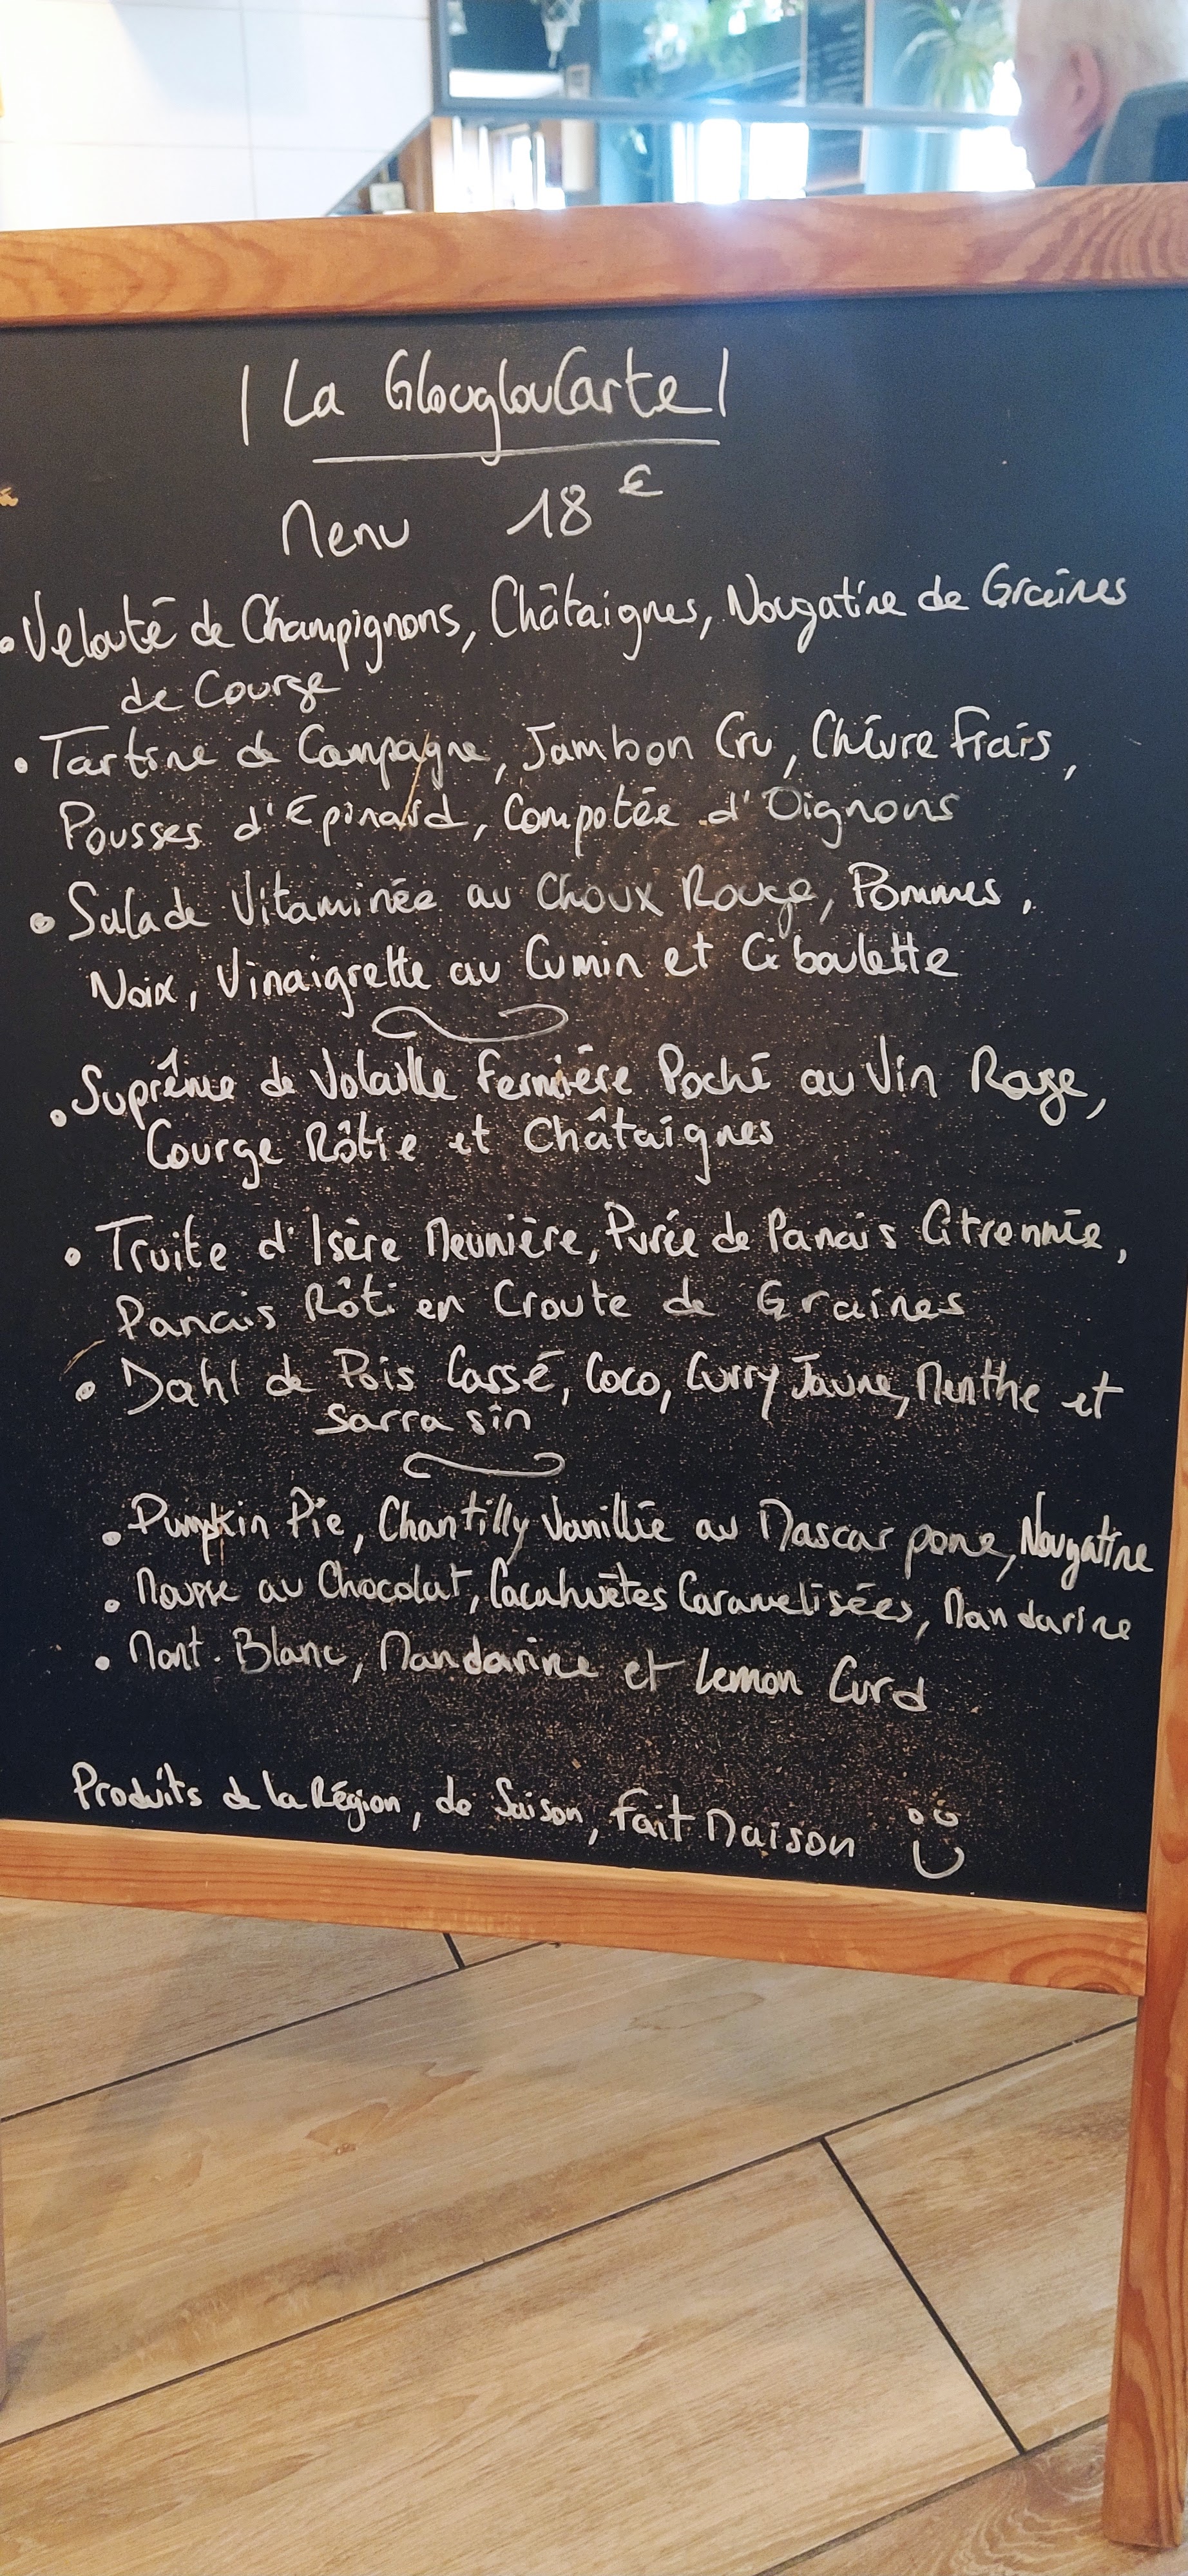 | La GlouglouCarte |
Menu 18 €
• Velouté de Champignons, Châtaignes, Nougatine de Graines
de Courge
• Tartine de Campagne, Jambon Cru, Chèvre Frais,
Pousses d'Epinard, Compotée d'Oignons
• Salade Vitaminée au Choux Rouge, Pommes,
Noix, Vinaigrette au Cumin et Ciboulette
• Suprême de Volaille Fermière Poché au Vin Rouge,
Courge Rôtie et Châtaignes
• Truite d'Isère Meunière, Purée de Panais Citronnée,
Panais Rôti en Croute de Graines
• Dahl de Pois Cassé, Coco, Curry Jaune, Menthe et
Sarrasin
• Pumpkin Pie, Chantilly Vanillée au Mascarpone, Nougatine
• Mousse au Chocolat, Cacahuètes Caramelisées, Mandarine
• Mont-Blanc, Mandarine et Lemon Curd
Produits de la Région, de Saison, Fait Maison